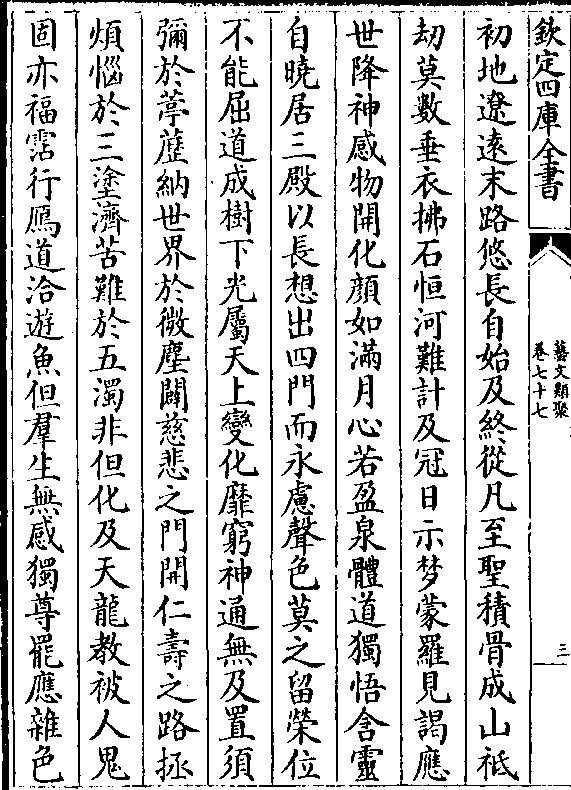 欽定四庫全書
藝文類聚
卷七十七
三
初地遼遠末路悠長自始及終從凡至聖積骨成山祇
劫莫數垂衣拂石恒河難計及冠日示梦蒙羅見謁應
世降神感物開化顔如滿月心若盈泉體道獨悟含靈
自曉居三殿以長想出四門而永慮聲色莫之留榮位
不能屈道成樹下光屬天上變化靡窮神通無及置須
彌於葶藶納世界於微塵闢慈悲之門開仁壽之路拯
煩惱於三塗濟苦難於五濁非但化及天龍教被人鬼
固亦福霑行鴈道洽遊魚但羣生無感獨尊罷應雜色